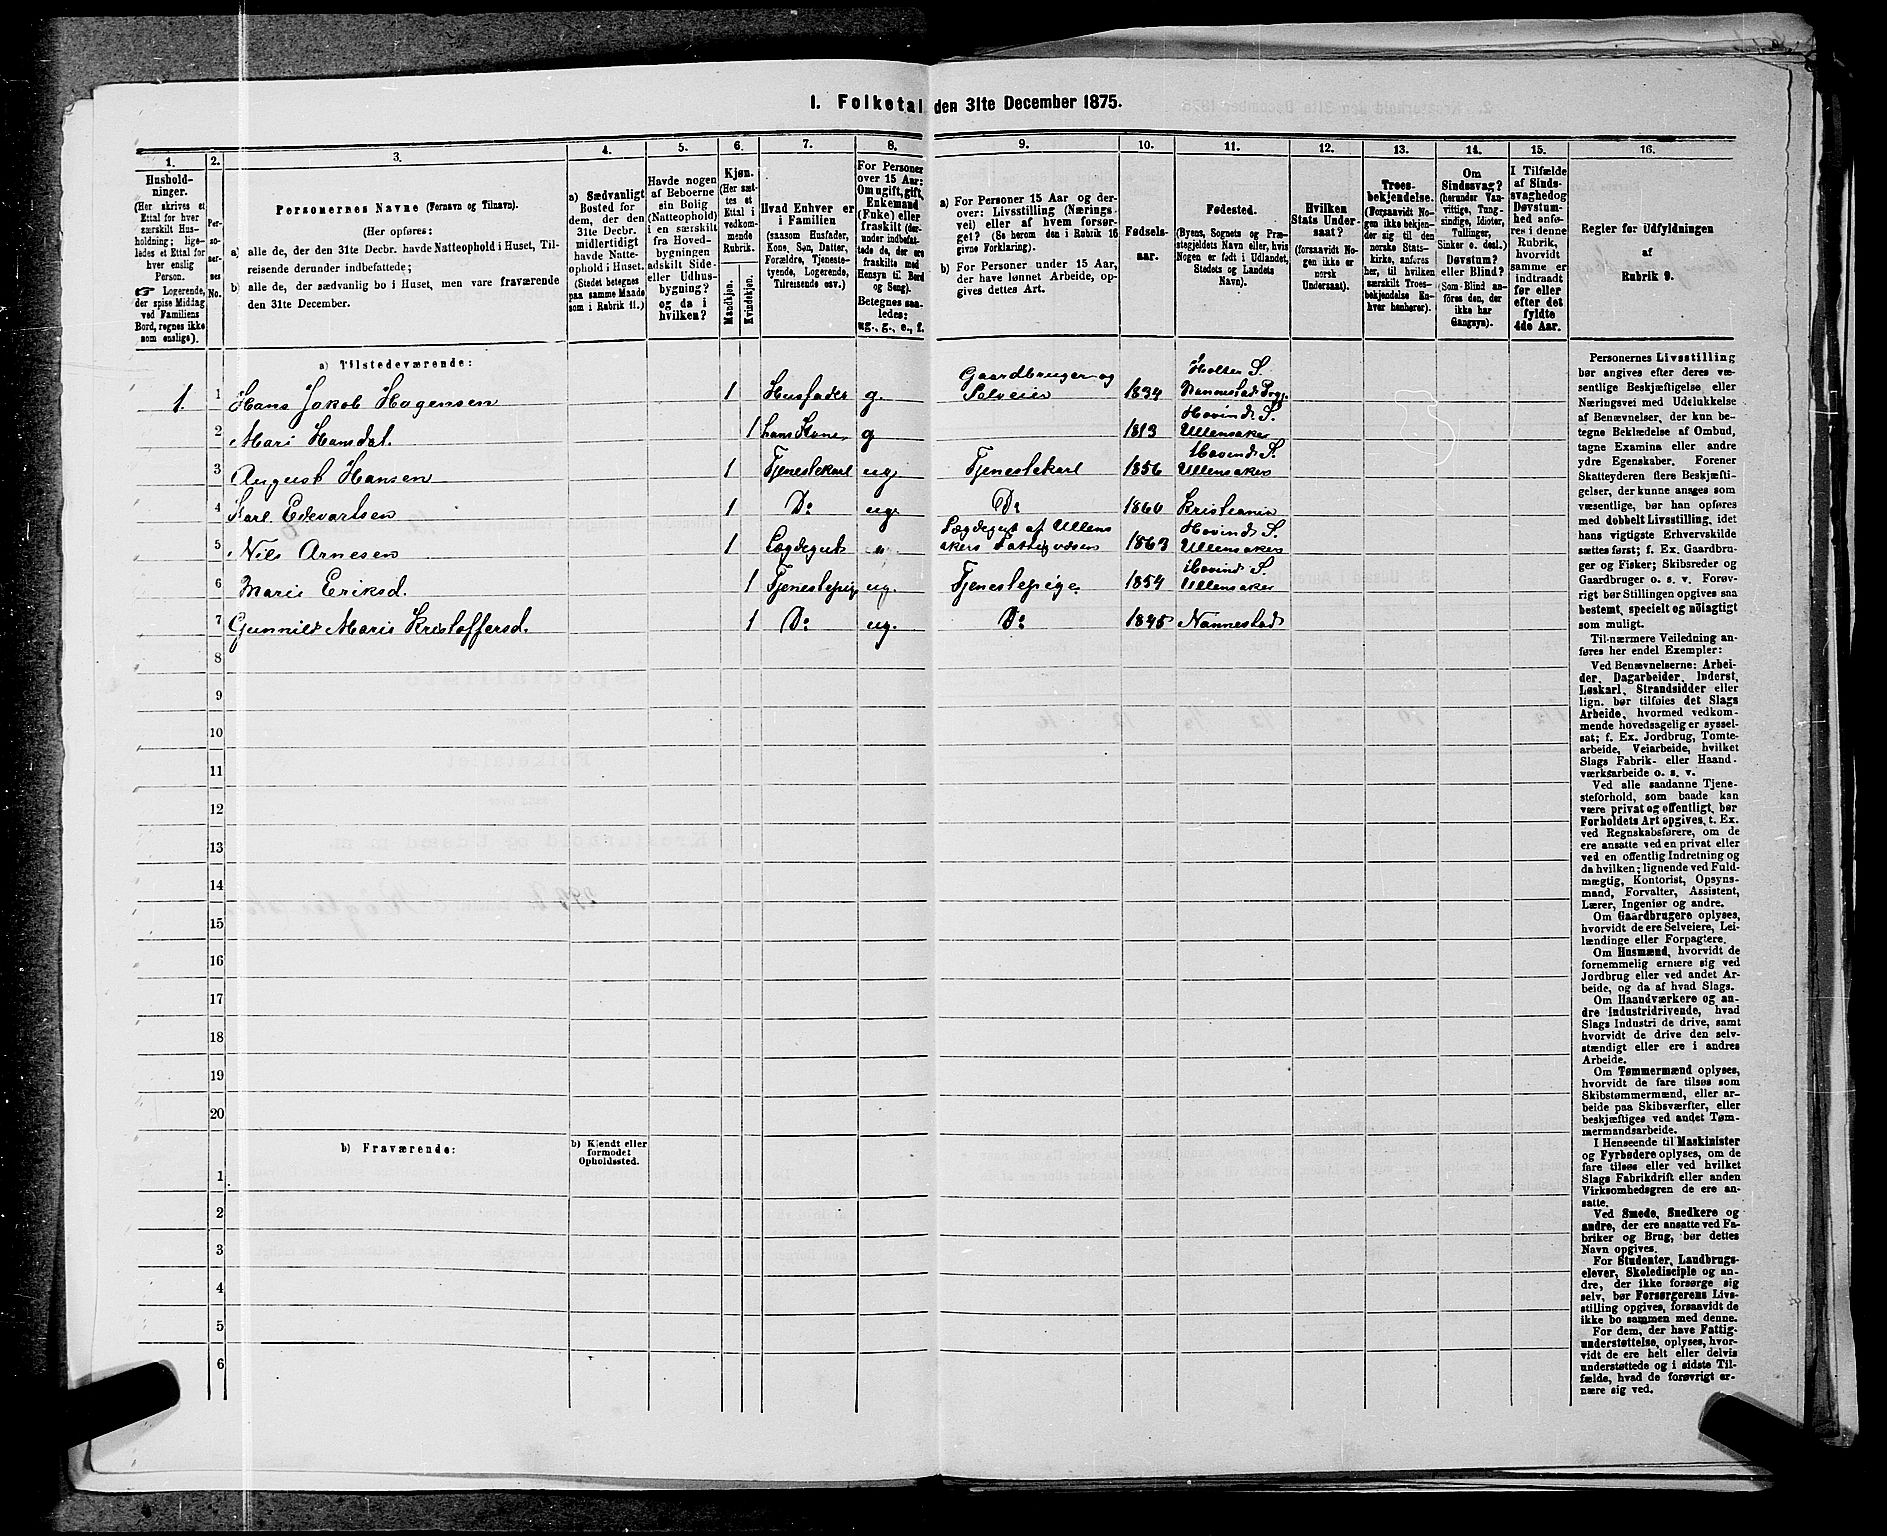 1. Folketal den 31te December 1875.
1.
2.
3.
4.
5.
6.
7.
8.
9.
10.
11.
12.
13.
14.
15.
16.
Husholdninger.
(Her skrives et
Ettal for hver
særskilt Husholdning;
ligeledes et Ettal for
hver enslig
Person.
☞ Logerende,
der spise Middag
ved Familiens
Bord, regnes ikke
som enslige).
Personernes No.
Personernes Navne (Fornavn og Tilnavn).
(Her opføres:
a) alle de, der den 31te Decbr. havde Natteophold i Huset, Tilreisende derunder indbefattede;
b) alle de, der sædvanlig bo i Huset, men vare fraværende
den 31te December.
a) Sædvanligt
Bosted for
dem, der den
31te Decbr.
midlertidigt
havde Natteophold i Huset.
(Stedet betegnes
paa samme Maade
som i Rubrik 11.)
Havde nogen
af Beboerne
sin Bolig
(Natteophold)
i en særskilt
fra Hovedbygningen
adskilt Side-
eller Udhusbygning?
og da i
hvilken?
Kjøn.
(Her sættes et
Ettal i
vedkommende
Rubrik.
Mandkjøn.
Kvindekjøn.
Hvad Enhver er
i Familien
(saasom Husfader,
Kone, Søn, Datter,
Forældre, Tjenestetyende, Logerende,
Tilreisende osv.)
For Personer
over 15 Aar:
Om ugift, gift,
Enkemand
(Enke) eller
fraskilt (derunder indbefattede de, der ere
fraskilte med
Hensyn til Bord
og Seng).
Betegnes saaledes:
ug., g., e., f.
a) For Personer 15 Aar og derover: Livsstilling (Næringsvei) eller af hvem forsørget? (Se herom den i Rubrik 16
givne Forklaring).
b) For Personer under 15 Aar,
der have lønnet Arbeide, opgives dettes Art.
Fødselsaar.
Fødested.
(Byens, Sognets og Præstegjeldets Navn eller, hvis
Nogen er født i Udlandet,
Stedets og Landets
Navn).
Hvilken
Stats Undersaat?
(forsaavidt Nogen ikke er
norsk
Undersaat).
Troesbekjendelse.
(Forsaavidt Nogen ikke bekjender sig til den
norske Statskirke, anføres
her, til hvilken
særskilt Troesbekjendelse Enhver henhører).
Om
Sindssvag?
(herunder Vanvittige, Tungsindige, Idioter,
Tullinger,
Sinker o. desl.)
Døvstum?
eller Blind?
(Som Blind anføres den, der
ikke har
Gangsyn).
I Tilfælde
af Sindssvaghed og
Døvstumhed anføres i denne
Rubrik,
hvorvidt
samme er
indtraadt
før eller
efter det
fyldte
4de Aar.
Regler for Udfyldningen
af
Rubrik 9.
a) Tilstedeværende:
1. 1 Hans Jakob Hagensen 1 Husfader g. Gaardbruger og Selveier 1834 Holter S. Nannestad Prgj.
2 Mari Hansdat. 1 hans Kone g 1813 Hovind S. Ullensaker
3 August Hansen 1 Tjenestekarl ug Tjenestekarl 1856 Hovind S. Ullensaker
4 Karl Edevartsen 1 Do ug. Do 1860 Kristiania
5 Nils Arnesen 1 Lægdegut Lægdegut af Ullensakers Fattigvæsen 1863 Hovind S. Ullensaker
6 Marie Eriksd. 1 Tjenestepige ug. Tjenestepige 1854 Hovind S. Ullensaker
7 Gunnild Maria Kristoffersd. 1 Do ug. Do 1845 Nannestad
8
9
10
11
12
13
14
15
16
17
18
19
20
b) Fraværende:
b) Kjendt eller
formodet
Opholdssted.
1
2
3
4
5
6
Personernes Livsstilling
bør angives efter deres væsentlige Beskjæftigelse eller
Næringsvei med Udelukkelse
af Benævnelser, der kun betegne Beklædelse af Ombud,
tagne Examina eller andre
ydre Egenskaber. Forener
Skatteyderen flere Beskjæftigelser, der kunne ansees som
væsentlige, bør han opføres
med dobbelt Livsstilling, idet
hans vigtigste Erhvervskilde
sættes først; f. Ex. Gaardbruger og Fisker; Skibsreder og
Gaardbruger o. s. v. Forøvrigt bør Stillingen opgives saa
bestemt, specielt og nøiagtigt
som muligt.
Til nærmere Veiledning anføres her endel Exempler:
Ved Benævnelserne: Arbeider, Dagarbeider, Inderst,
Løskarl, Strandsidder eller
lign. bør tilføies det Slags
Arbeide, hvormed vedkommende hovedsagelig er sysselsat; f. Ex. Jordbrug, Tomtearbeide, Veiarbeide, hvilket
Slags Fabrik- eller Haandværksarbeide o. s. v.
Ved alle saadanne Tjenesteforhold, som baade kan
være privat og offentligt, bør
Forholdets Art opgives, t. Ex.
ved Regnskabsførere, om de
ere ansatte ved en privat eller
ved en offentlig Indretning og
da hvilken; lignende ved Fuldmægtig, Kontorist, Opsynsmand, Forvalter, Assistent,
Lærer, Ingeniør og andre.
Om Gaardbrugere oplyses,
hvorvidt de ere Selveiere, Leilændinge eller Forpagtere.
Om Husmænd, hvorvidt de
fornemmelig ernære sig ved
Jordbrug eller ved andet Arbeide, og da af hvad Slags.
Om Haandværkere og andre Industridrivende, hvad
Slags Industri de drive, samt
hvorvidt de drive den selvstændigt eller ere i andres
Arbeide.
Om Tømmermænd oplyses,
hvorvidt de fare tilsøs som
Skibstømmermænd, eller arbeide paa Skibsværfter, eller
beskjæftiges ved andet Tømmermandsarbeide.
I Henseende til Maskinister
og Fyrbødere oplyses, om de
fare tilsøs eller ved hvilket
Slags Fabrikdrift eller anden
Virksomhedsgren de ere ansatte.
Ved Smede, Snedkere og
andre, der ere ansatte ved Fabriker og Brug, bør dettes
Navn opgives.
For Studenter, Landbrugselever, Skoledisciple og andre, der ikke forsørge sig
selv, bør Forsørgerens Livsstilling opgives, forsaavidt de
ikke bo sammen med denne.
For dem, der have Fattigunderstøttelse, oplyses, hvorvidt de ere helt eller delvis
understøttede og i sidste Tilfælde, hvad de forøvrigt ernære sig ved.